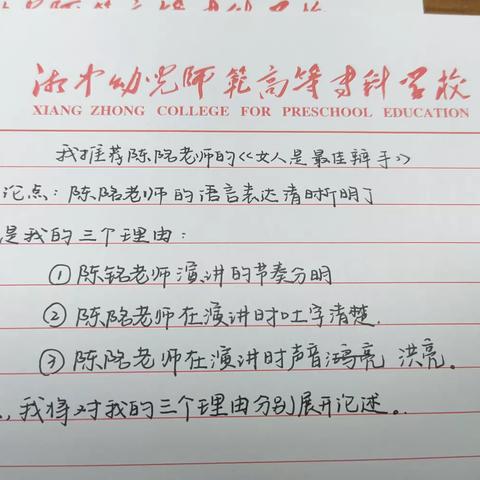 湘中幼儿师范高等专科学校
XIANG ZHONG COLLEGE FOR PRESCHOOL EDUCATION
我推荐陈铭老师的《女人是最佳辩手》
论点：陈铭老师的语言表达清晰明了
是我的三个理由：
①陈铭老师演讲的节奏分明
②陈铭老师在演讲时吐字清楚.
③陈铭老师在演讲时声音鸿亮 洪亮。
，我将对我的三个理由分别展开论述。